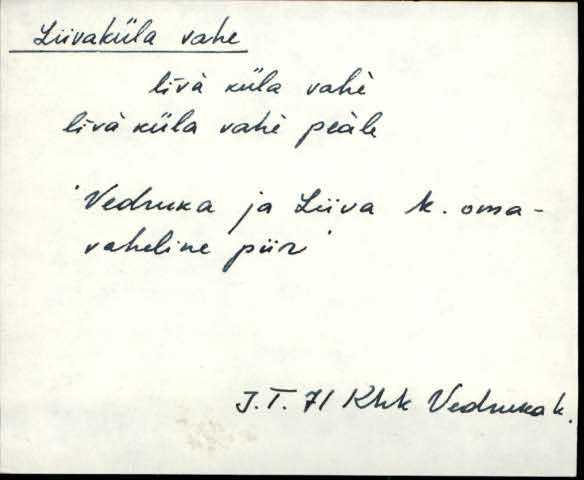 Liivaküla vahe
līvà küla vahè
līvà küla vahè peàle
'Vedruka ja Liiva k. oma-
vaheline piir'
J.T. 71 Khk Vedruka k.